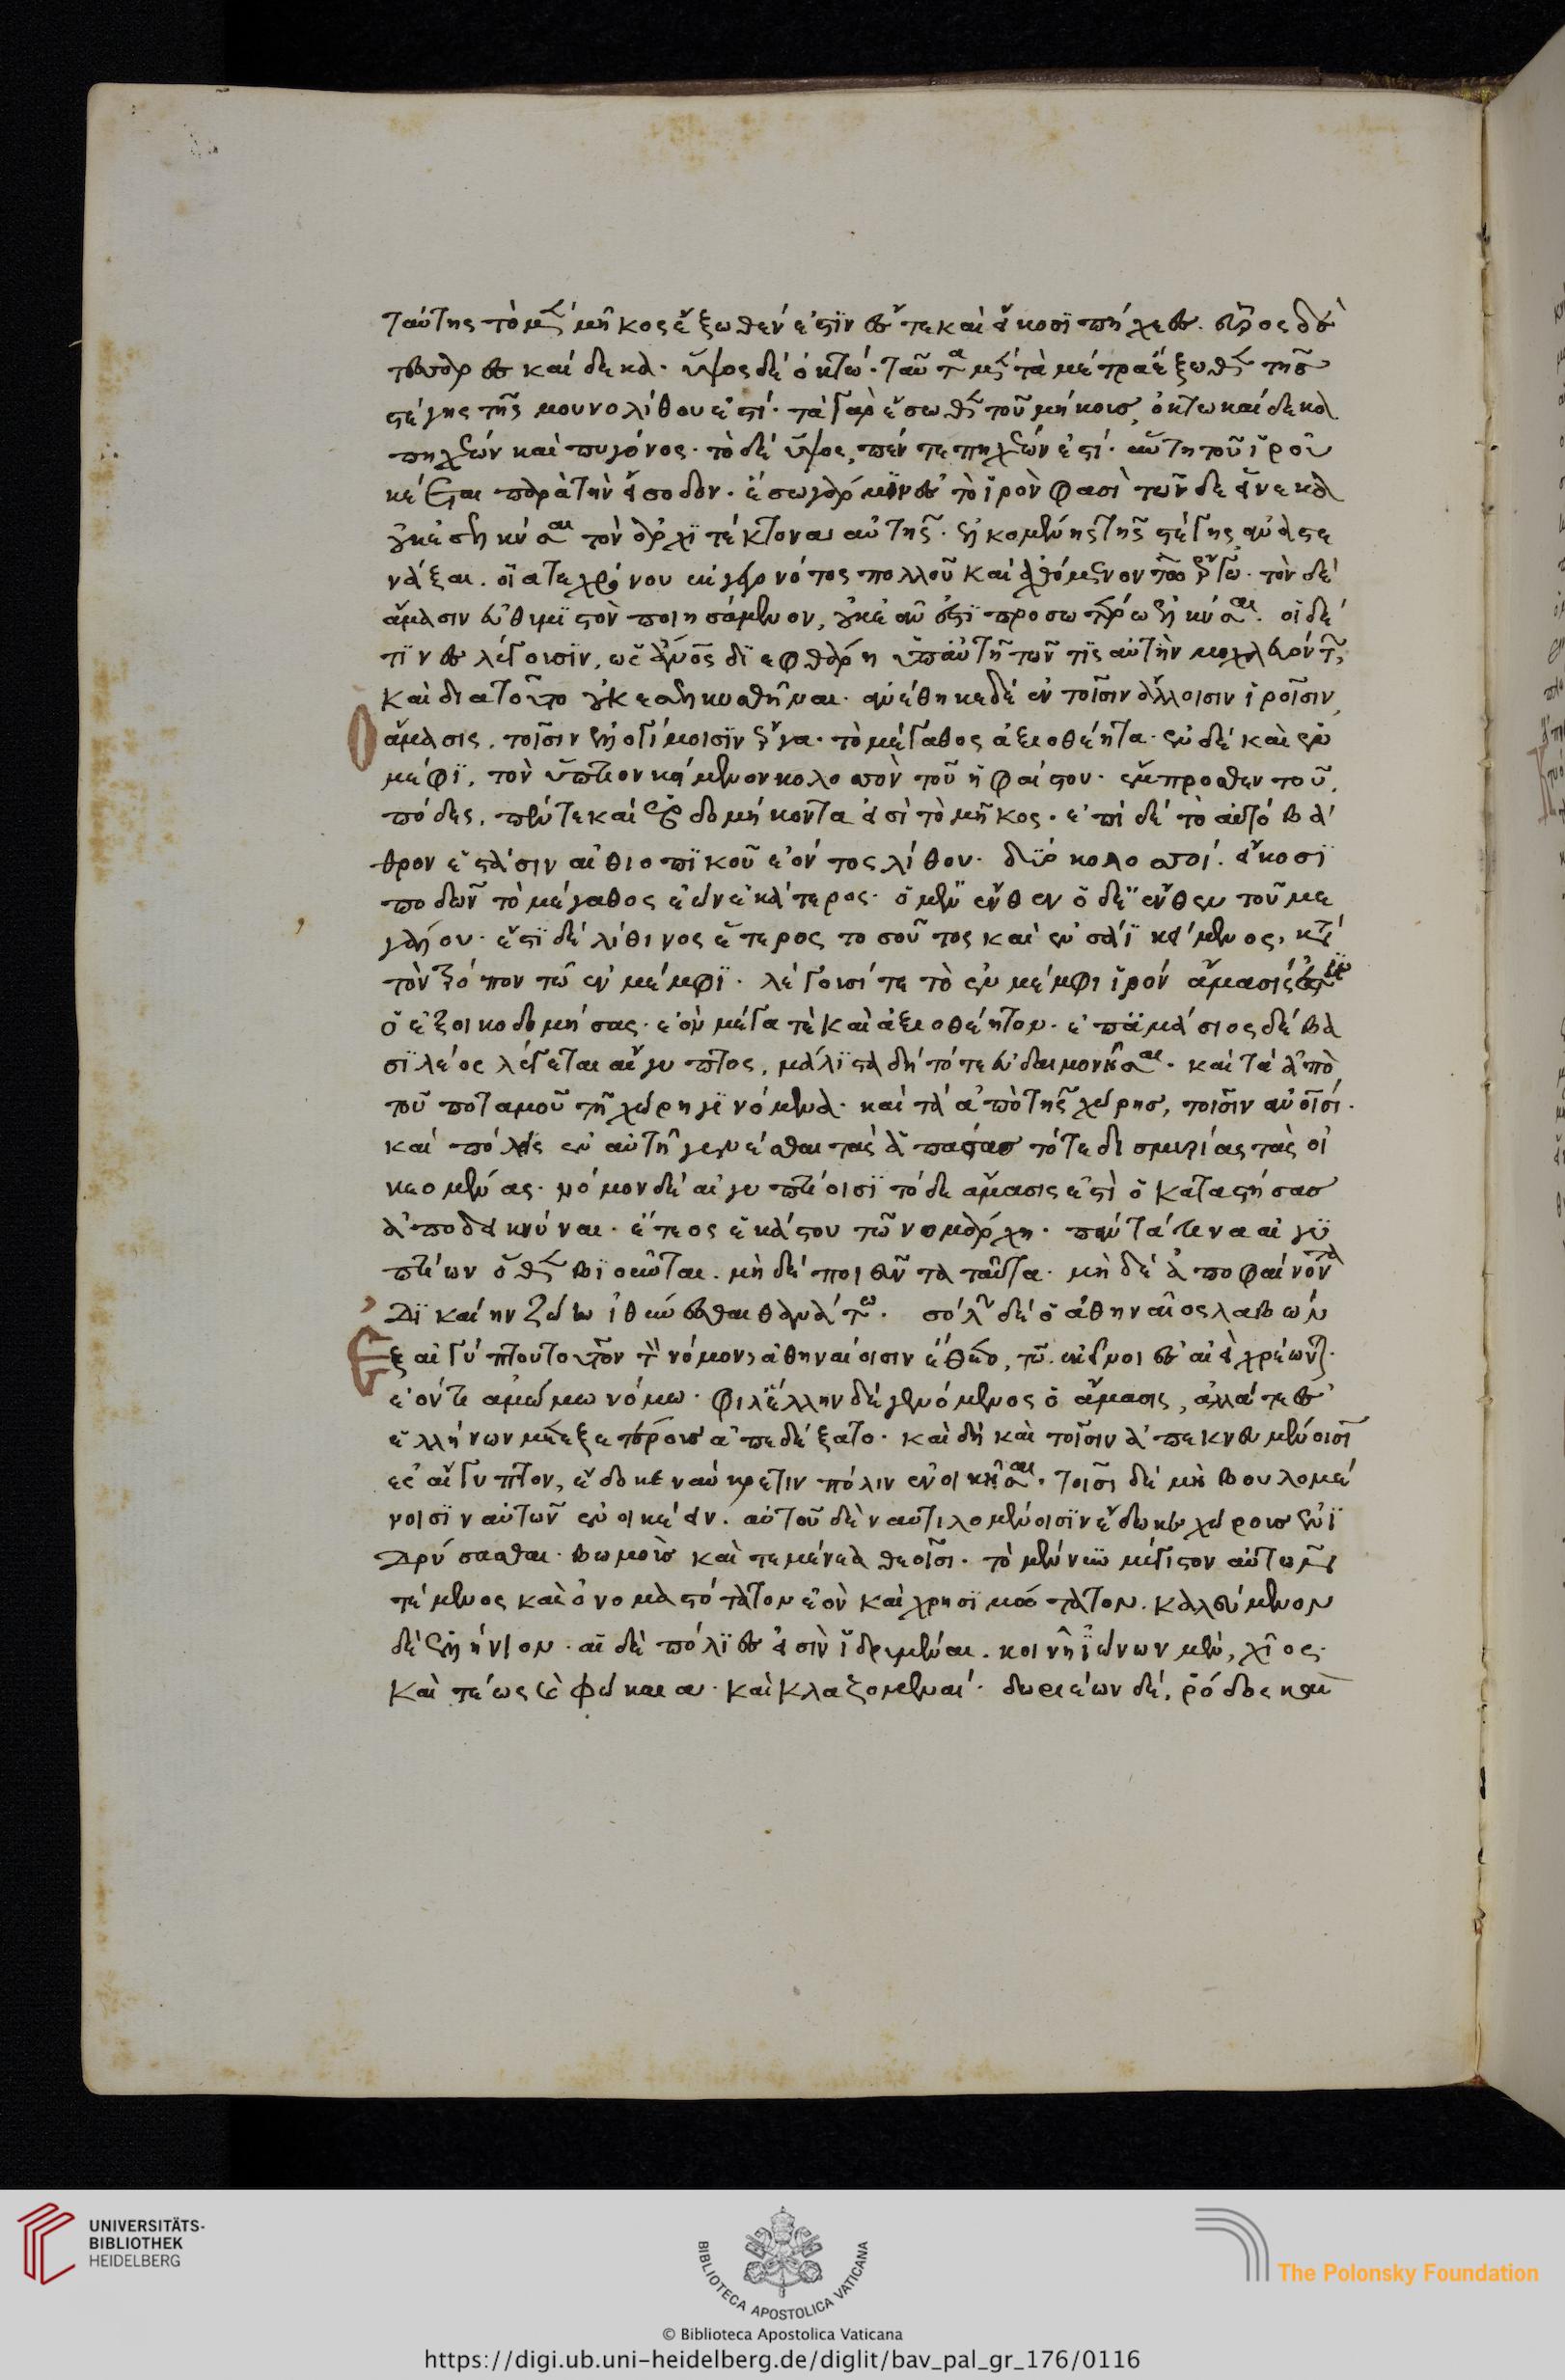 ταύτης τὸ μὲν μῆκος ἔξωθέν ἐστιν εἷς τε καὶ εἴκοσι πήχεες. εὖρος δὲ
τεσσαρεσκαίδεκα. ὕψος δὲ ὀκτώ. ταῦτα μὲν τὰ μέτρα ἔξωθεν τῆς
στέγης τῆς μουνολίθου ἐστί. τὰ γὰρ ἔσωθεν τοῦ μήκους, ὀκτωκαίδεκα
πηχέων καὶ πυγόνος. τὸ δὲ ὕψος, πέντε πηχέων ἐστί. αὕτη τοῦ ἱροῦ
κέεται παρὰ τὴν εἴσοδον. ἔσω γάρ μιν ἐς τὸ ἱρὸν φασὶ τῶνδε εἵνεκα
οὐκ ἐσελκύσαι τὸν ἀρχιτέκτονα αὐτῆς. ἑλκομένης τῆς στέγης ἀναστε
νάξαι. οἷά τε χρόνου ἐκγεγονότος πολλοῦ καὶ ἀχθόμενον τῷ ἔργῳ. τὸν δὲ
ἄμασιν ἐνθυμιστὸν ποιησάμενον, οὐκ ἐᾶν ἔτι προσωτέρω ἑλκύσαι. οἱ δέ
τινες λέγουσιν, ὡς ἄνθρωπος διεφθάρη ὑπ' αὐτῆς τῶν τις αὐτὴν μοχλευόντων,
καὶ διὰ τοῦτο οὐκ ἐσελκυσθῆναι. ἀνέθηκε δὲ ἐν τοῖσιν ἄλλοισιν ἱροῖσιν
ὁ ἄμασις, τοῖσιν ἐλλογίμοισιν ἔργα. τὸ μέγαθος ἀξιοθέητα. ἐν δὲ καὶ ἐν
μέμφι, τὸν ὕπτιον κείμενον κολοσσὸν τοῦ ἡφαίστου. ἔμπροσθεν τοῦ,
πόδες, πέντε καὶ ἑβδομήκοντα εἰσὶ τὸ μῆκος. ἐπὶ δὲ τῷ αὐτῷ βά
θρῳ ἑστᾶσιν αἰθιοπικοῦ ἐόντος λίθου. δύο κολοσσοί. εἴκοσι
ποδῶν τὸ μέγαθος ἐὼν ἑκάτερος. ὁ μὲν ἔνθεν ὁ δὲ ἔνθεν τοῦ με
γάλου. ἔστι δὲ λίθινος ἕτερος τοσοῦτος καὶ ἐν σάϊ κείμενος, κατὰ
τὸν τρόπον τῷ ἐν μέμφι. τῇ ἴσι τε τὸ ἐν μέμφι ἱρὸν ἄμασίς ἐστιν
ὁ ἐξοικοδομήσας. ἐὸν μέγα τε καὶ ἀξιοθέητον. ἐπ' ἀμάσιος δὲ βα
σιλέος λέγεται αἴγυπτος, μάλιστα δὴ τότε εὐδαιμονῆσαι. καὶ τὰ ἀπὸ
τοῦ ποταμοῦ τῇ χώρῃ γινόμενα. καὶ τὰ ἀπὸ τῆς χώρης, τοῖσιν ἀνθρώποισι.
καὶ πόλις ἐν αὐτῇ γενέσθαι τὰς ἁπάσας τότε δισμυρίας τὰς οἰ
κεομένας. νόμον δὲ αἰγυπτίοισι τόνδε ἄμασις ἐστὶ ὁ καταστήσας
ἀποδεικνύναι. ἔτεος ἑκάστου τῷ νομάρχῃ. πάντα τινὰ αἰγυ
πτίων ὅθεν βιοῦται. μὴ δὲ ποιεῦντα ταῦτα. μὴ δὲ ἀποφαίνοντα
δικαίην ζόην ἰθύνεσθαι θανάτῳ. σόλων δὲ ὁ ἀθηναῖος λαβὼν
ἐξ αἰγύπτου τοῦτον τὸν νόμον, ἀθηναίοισιν ἔθετο, τῷ ἐκεῖνοι ἐς αἰεὶ χρέωνται.
ἐόντι ἀμώμῳ νόμῳ. φιλέλλην δὲ γενόμενος ὁ ἄμασις, ἄλλα τε ἐς
ἑλλήνων μετεξετέρους ἀπεδέξατο. καὶ δὴ καὶ τοῖσιν ἀπικνευμένοισι
ἐς αἴγυπτον, ἔδωκε ναύκρατιν πόλιν ἐνοικῆσαι. τοῖσι δὲ μὴ βουλομέ
νοισιν αὐτῶν ἐνοικέειν. αὐτοῦ δὲ ναυτιλομένοισιν ἔδωκε χώρους ἐνι
δρύσασθαι. βωμοὺς καὶ τεμένεα θεοῖσι. τὸ μέν νυν μέγιστον αὐτῶν
τέμενος καὶ ὀνομαστότατον ἐὸν καὶ χρησιμώτατον. καλεύμενον
δὲ ἑλλήνιον. αἵδε πόλιες εἰσὶν ἱδρυμέναι. κοινῇ ἰώνων μὲν, χῖος.
καὶ τέως καὶ φώκαια. καὶ κλαζομεναί. δωριέων δὲ, ῥόδος καὶ
UNIVERSITÄTS-
BIBLIOTHEK
HEIDELBERG
BIBLIOTECA APOSTOLICA VATICANA
The Polonsky Foundation
© Biblioteca Apostolica Vaticana
https://digi.ub.uni-heidelberg.de/diglit/bav_pal_gr_176/0116